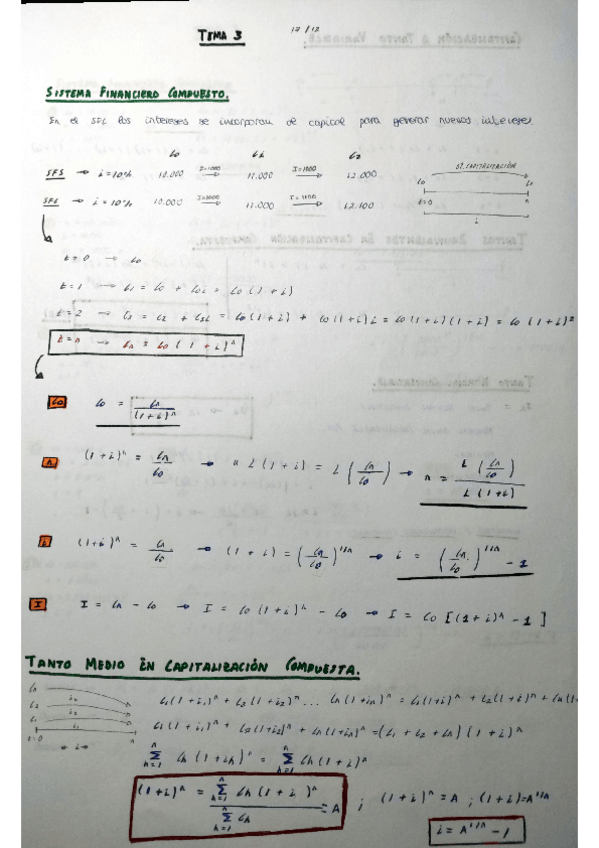 TEMA 3
17/12
SISTEMA FINANCIERO COMPUESTO.
En el SFC los intereses se incorporan de capital para generar nuevos intereses.
C0 C1 C2
SFS → i = 10% 10.000 I=1000 → 11.000 I=1000 → 12.000
SFC → i = 10% 10.000 I=1000 → 11.000 I=1100 → 12.100
ST. CAPITALIZACIÓN
C0 Cn
t=0 n
i
t=0 → C0
t=1 → C1 = C0 + C0i = C0(1+i)
t=2 → C2 = C1 + C1i = C0(1+i) + C0(1+i)i = C0(1+i)(1+i) = C0(1+i)²
t=n → Cn = C0(1+i)ⁿ
C0 C0 = Cn/(1+i)ⁿ
n (1+i)ⁿ = Cn/C0 → n L(1+i) = L(Cn/C0) → n = L(Cn/C0)/L(1+i)
i (1+i)ⁿ = Cn/C0 → (1+i) = (Cn/C0)^1/n → i = (Cn/C0)^1/n - 1
I I = Cn - C0 → I = C0(1+i)ⁿ - C0 → I = C0[(1+i)ⁿ - 1]
TANTO MEDIO EN CAPITALIZACIÓN COMPUESTA.
Cn
C2 i2
C1 i1
t=0 n
← i →
C1(1+i1)ⁿ + C2(1+i2)ⁿ ... Cn(1+in)ⁿ = C1(1+i)ⁿ + C2(1+i)ⁿ + Cn(1+
C1(1+i1)ⁿ + C2(1+i2)ⁿ + Cn(1+in)ⁿ = (C1 + C2 + Cn)(1+i)ⁿ
n∑h=1 Ch(1+ih)ⁿ = n∑h=1 Ch(1+i)ⁿ
(1+i)ⁿ = n∑h=1 Ch(1+i)ⁿ / n∑h=1 Ch = A ; (1+i)ⁿ = A ; (1+i)=A^1/n
i = A^1/n - 1